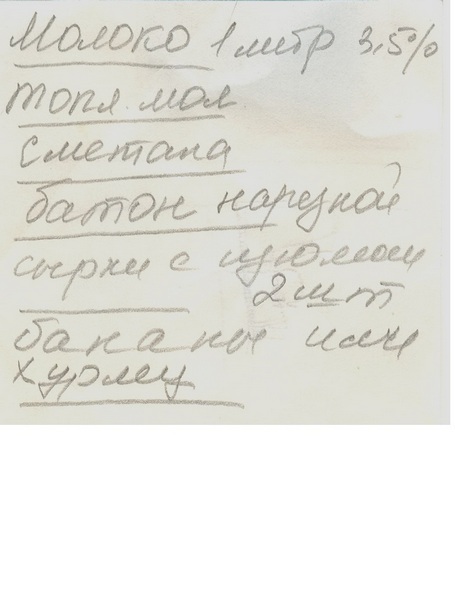 Молоко 1 литр 3,5%
топл. мол
сметана
батон нарезной
сырки с изюмом
2 шт
бананы или
хурму